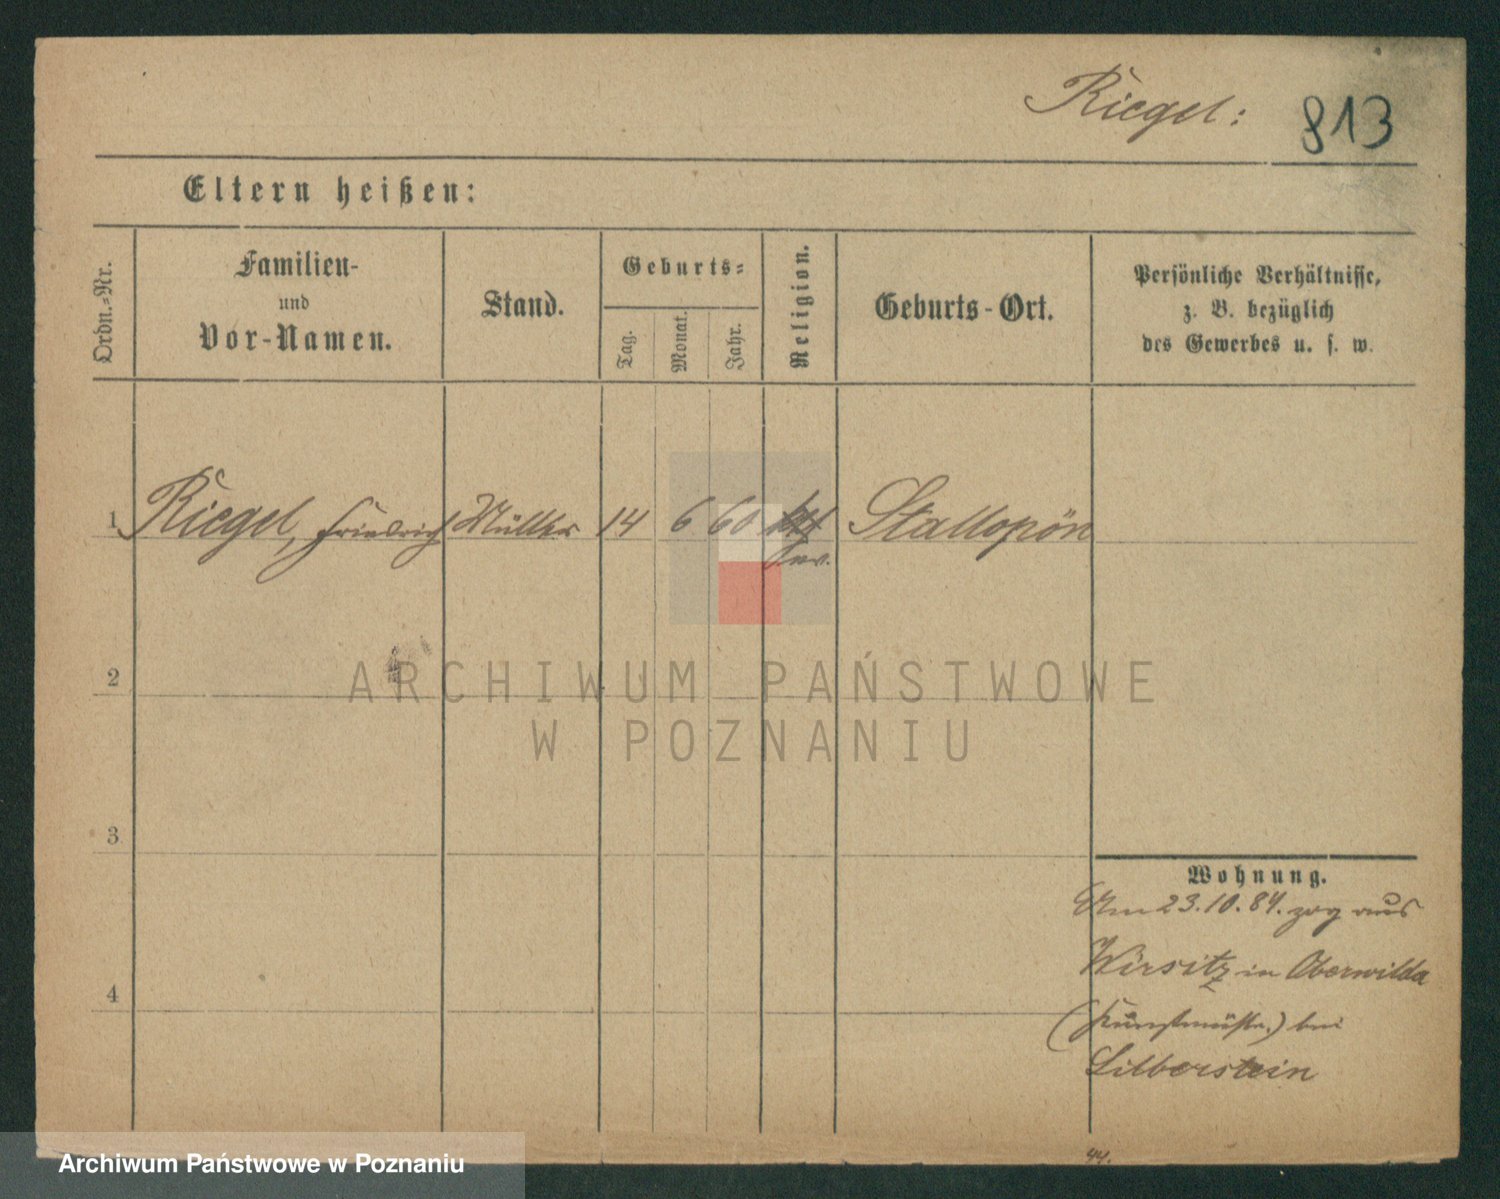 Riegel: 813
Eltern heißen:
Ordn.-Nr.
Familien-
und
Vor-Namen.
Stand.
Geburts-
Tag.
Monat.
Jahr.
Religion.
Geburts-Ort.
Persönliche Verhältnisse,
z. B. bezüglich
des Gewerbes u. s. w.
1 Riegel, Friedrich Müller 14 6 60 Stallopön
ev.
2
ARCHIWUM PAŃSTWOWE
W POZNANIU
3
Wohnung.
Am 23.10.84. zog aus
Wirsitz in Oberwilda
4
(Kunstmühle.) bei
Silberstein
44.
Archiwum Państwowe w Poznaniu